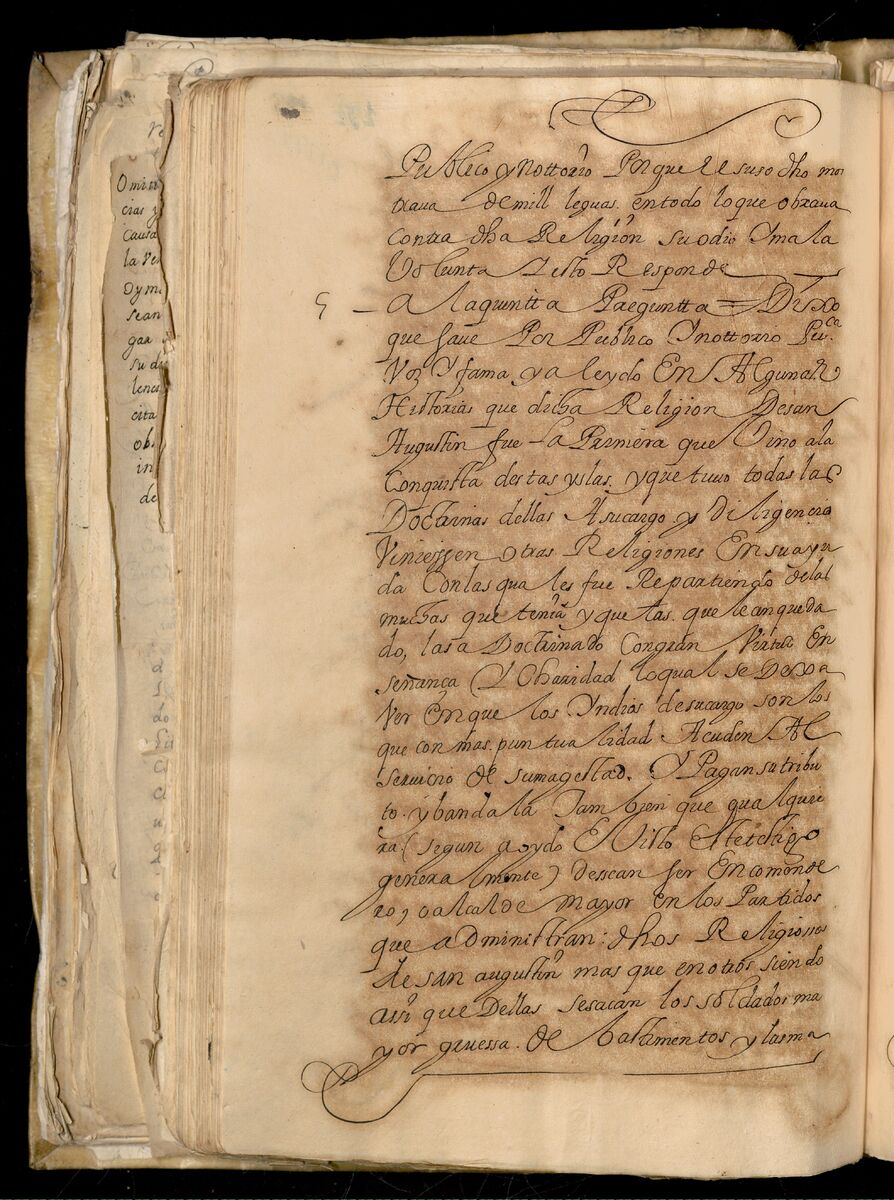 Omiti
cias y
causa
la ve
dymi
sean
gar
su di
lenci
cita
obs
in
de
Publico y nottorio Porque el suso dho mos
traua de mill leguas. en todo lo que obraua
contra dha Religion su odio y mala
Voluntad esto Responde
5 – A la quintta Preguntta = Dixo
que saue Por Publico y nottorio Puca
Voz y fama y a leydo En Algunas
Historias que dicha Religion de san
Augustin fue la Primera que Vino a la
Conquista destas yslas. y que tuuo todas las
Doctrinas dellas A su cargo y diligencia
Viniessen otras Religiones En su ayu
da Con las quales fue Repartiendo de las
muchas que tenia y que las. que le an queda
do, las a Doctrinado Con gran Virtud En
señança y Charidad lo qual se Dexa
Ver En que los Yndios de su cargo son los
que con mas puntualidad Acuden Al
seruicio de su magestad. Y Pagan su tribu
to. y bandala Tambien que qualquie
ra (segun a oydo E Visto Este testigo
generalmente) dessean ser Encomende
ro, o alcalde mayor en los Partidos
que administran: dhos Religiosos
de san augustin mas que en otros siendo
assi que Dellas se sacan los soldados ma
yor gruessa. de bastimentos y las ma